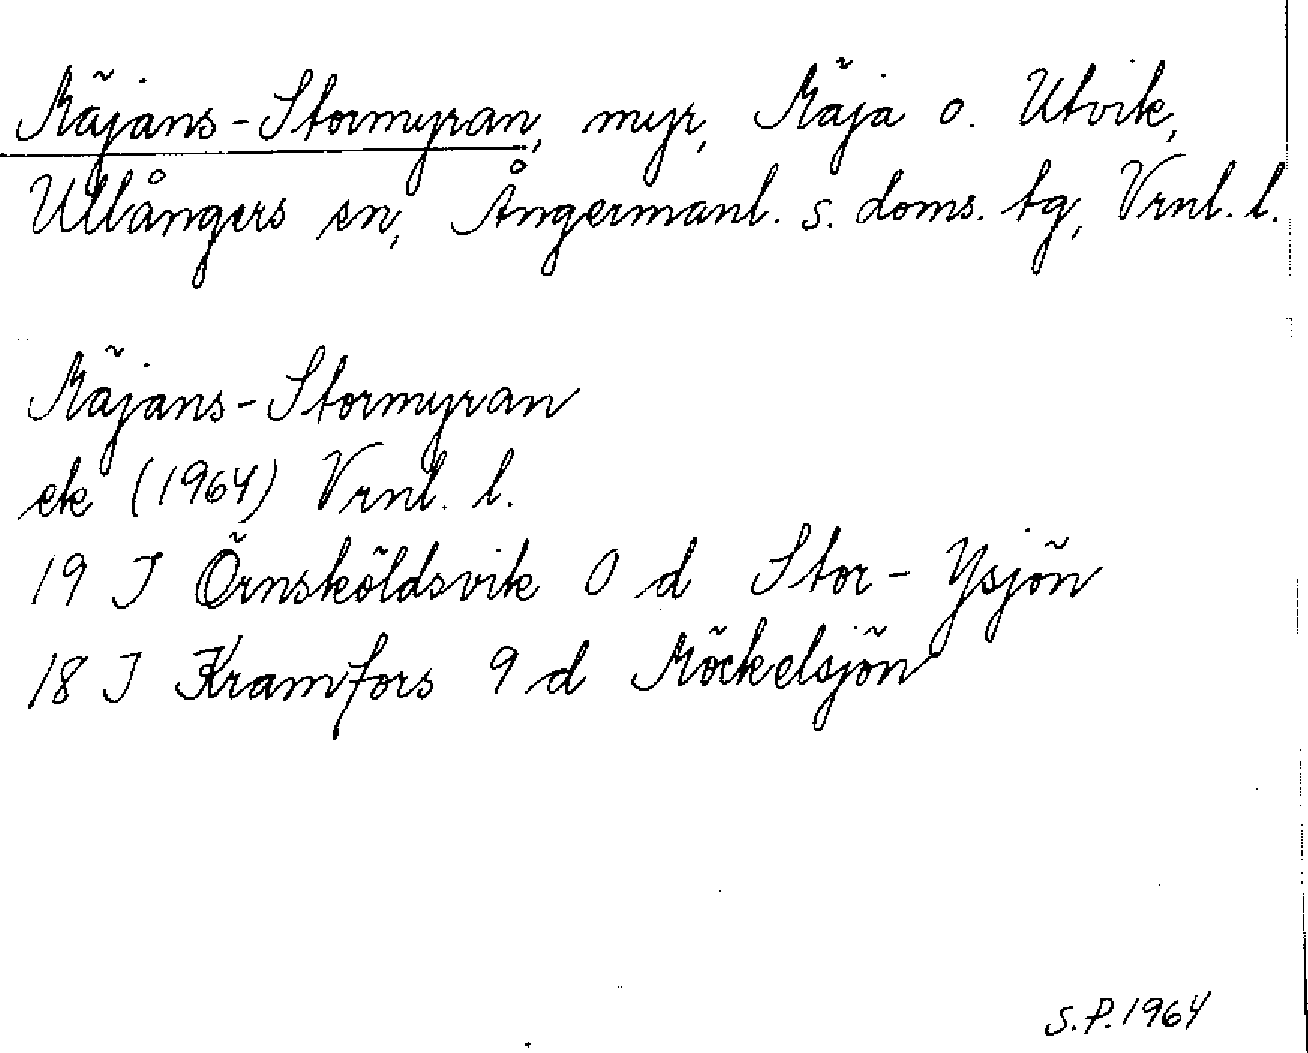 Mäjans-Stormyran, myr, Mäja o. Utvik,
Ullångers sn, Ångermanl. s. doms. tg, Vrnl. l.
Mäjans-Stormyran
ek (1964) Vrnl. l.
19 I Örnsköldsvik 0 d Stor-Ysjön
18 I Kramfors 9 d Möckelsjön
S.P. 1964